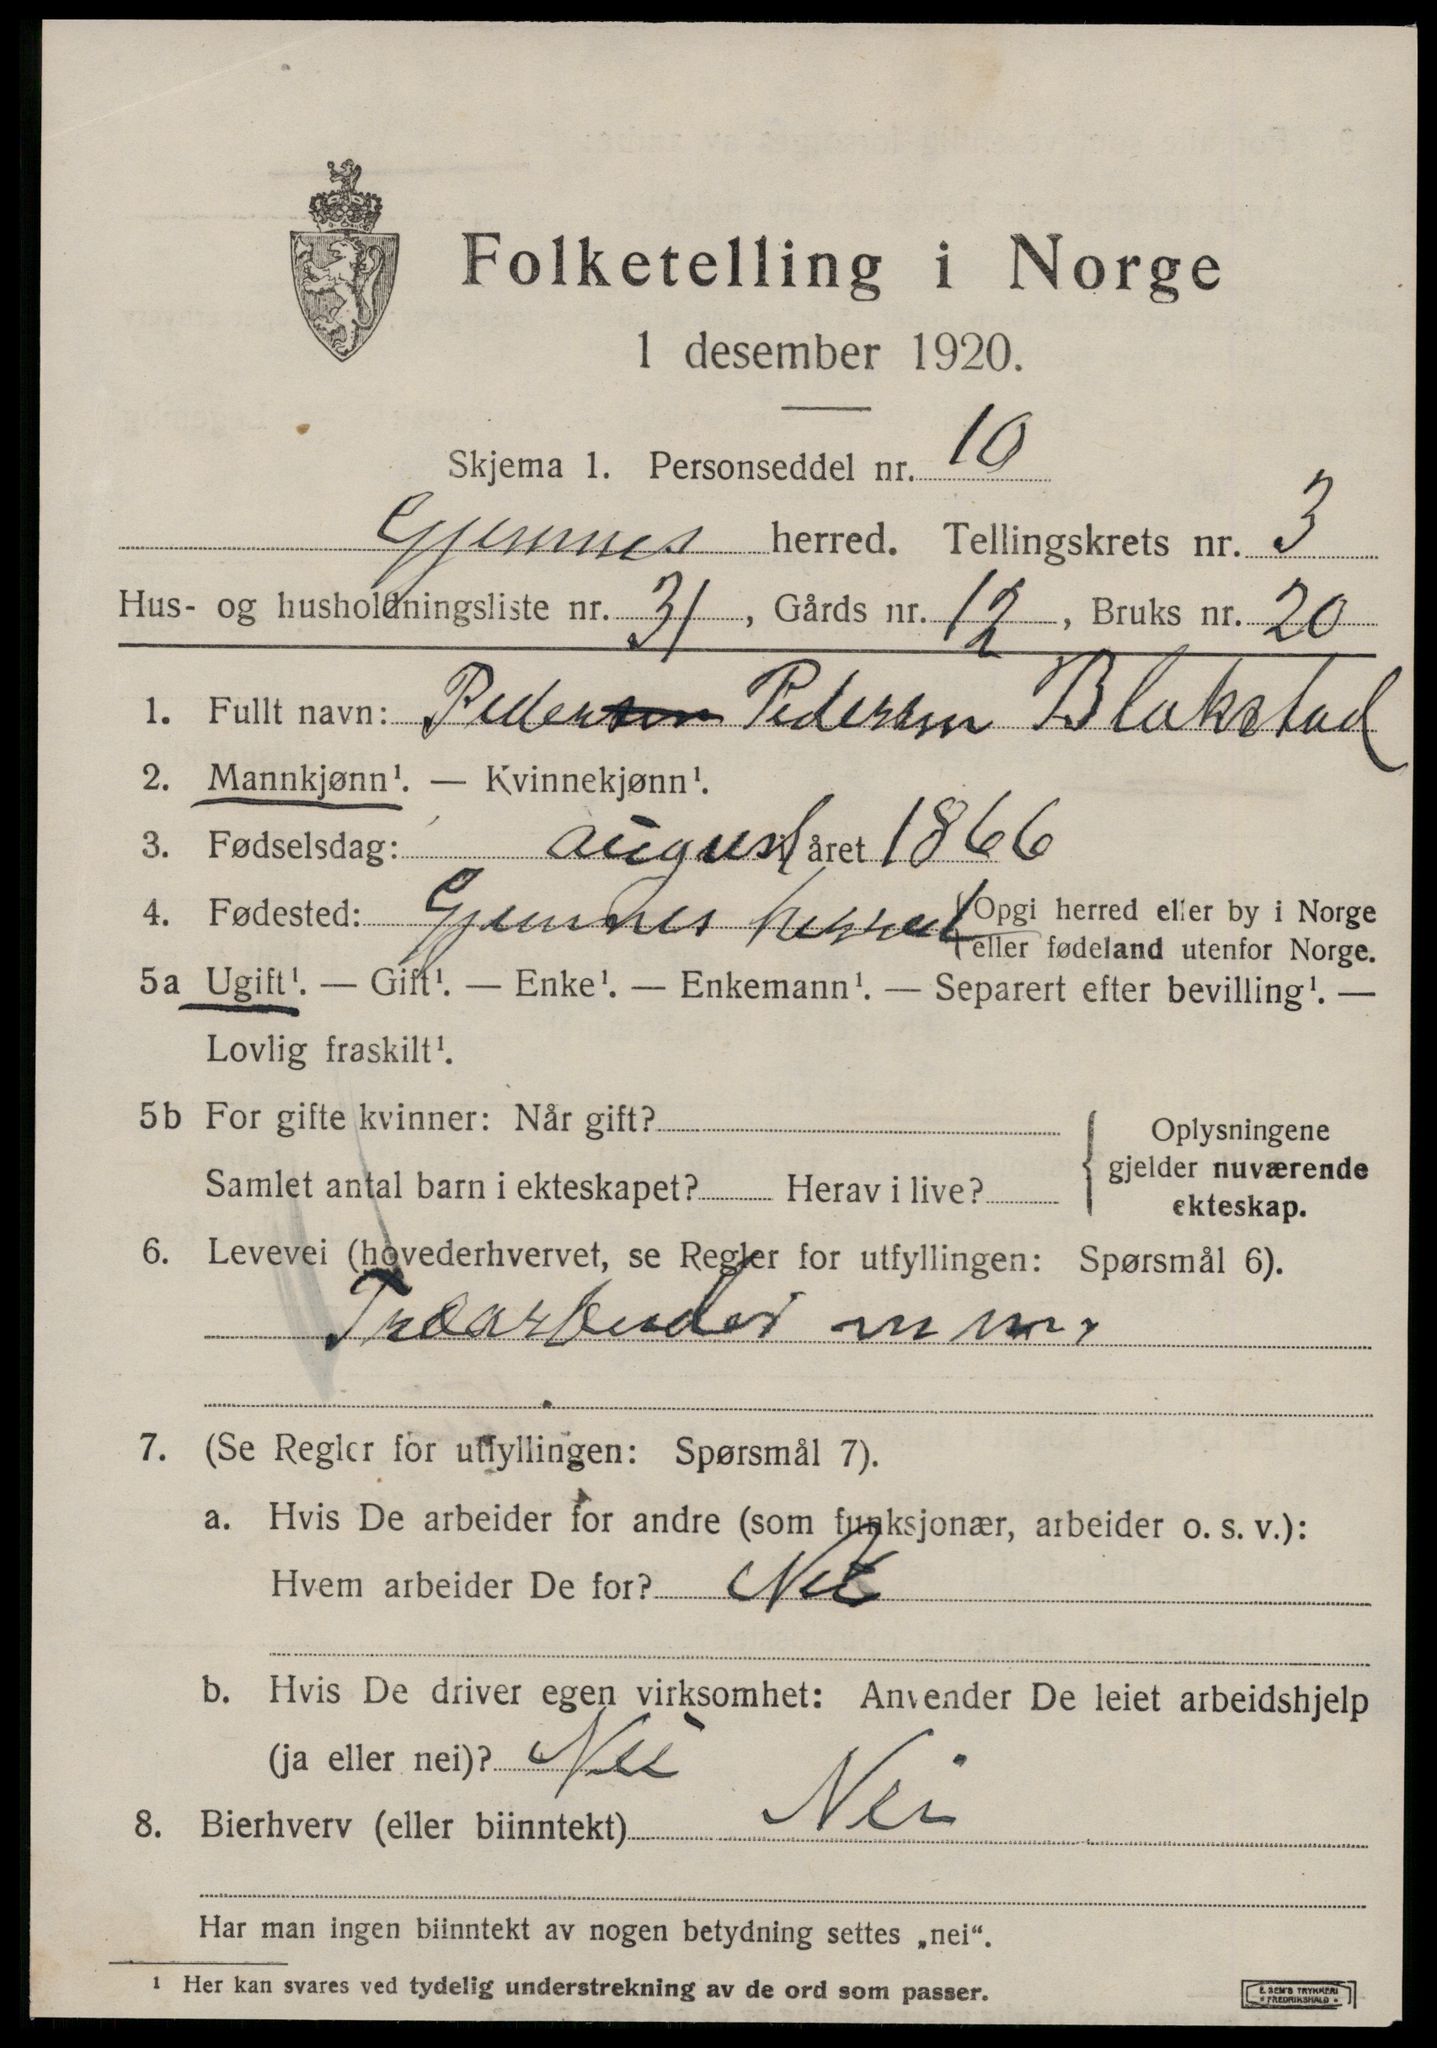 Folketelling i Norge
1 desember 1920.
Skjema 1. Personseddel nr. 10
Gjemnes herred. Tellingskrets nr. 3
Hus- og husholdningsliste nr. 31, Gårds nr. 12, Bruks nr. 20
1. Fullt navn: Pedersen Pedersen Blakstad
2. Mannkjønn¹. — Kvinnekjønn¹.
3. Fødselsdag: august i året 1866
4. Fødested: Gjemnes herred {Opgi herred eller by i Norge
eller fødeland utenfor Norge.
5a Ugift¹. — Gift¹. — Enke¹. — Enkemann¹. — Separert efter bevilling¹. —
Lovlig fraskilt¹.
5b For gifte kvinner: Når gift?
Samlet antal barn i ekteskapet? Herav i live?
{ Oplysningene
gjelder nuværende
ekteskap.
6. Levevei (hovederhvervet, se Regler for utfyllingen: Spørsmål 6).
Træarbeider m m.
7. (Se Regler for utfyllingen: Spørsmål 7).
a. Hvis De arbeider for andre (som funksjonær, arbeider o. s. v.):
Hvem arbeider De for? Nei
b. Hvis De driver egen virksomhet: Anvender De leiet arbeidshjelp
(ja eller nei)? Nei
8. Bierhverv (eller biinntekt) Nei
Har man ingen biinntekt av nogen betydning settes „nei“.
¹ Her kan svares ved tydelig understrekning av de ord som passer.
E. SEM'S TRYKKERI
• FREDRIKSHALD •